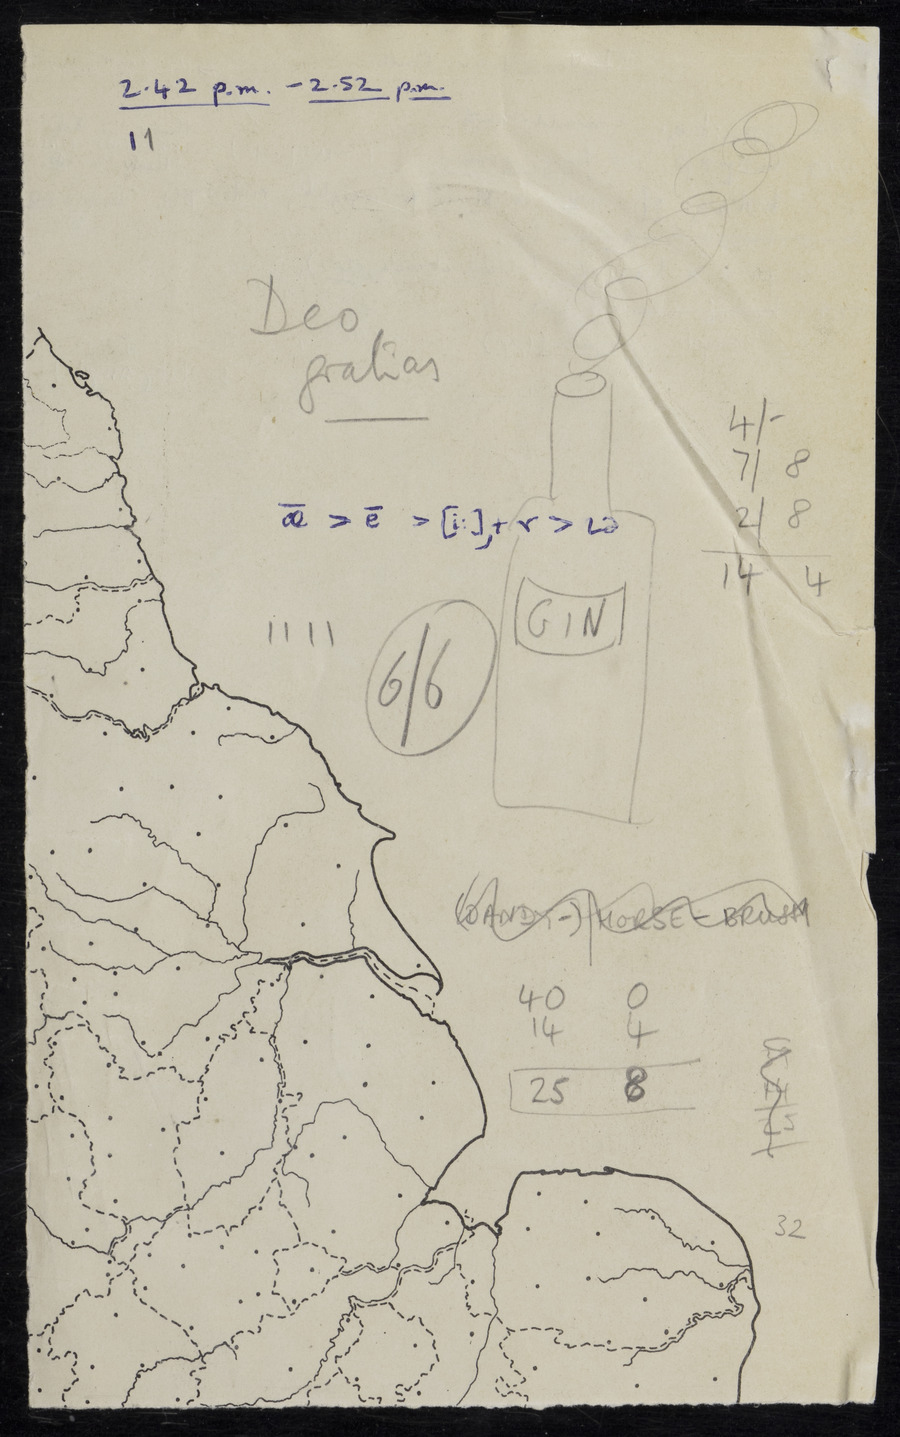 2.42 p.m. – 2.52 p.m.
11
Deo
gratias
4/-
7/ 8
2/ 8
14 4
ǣ > ē > [i:], + r > iə
GIN
11 11
6/6
(DANDY-) HORSE-BRUSH
40 0
14 4
25 8
32